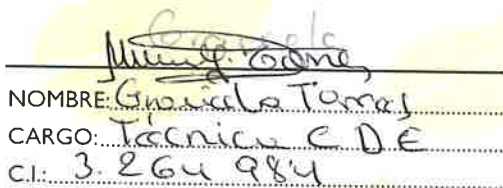 Graciela
NOMBRE: Graciela Torres
CARGO: Técnica C D E
C.I.: 3. 264 984